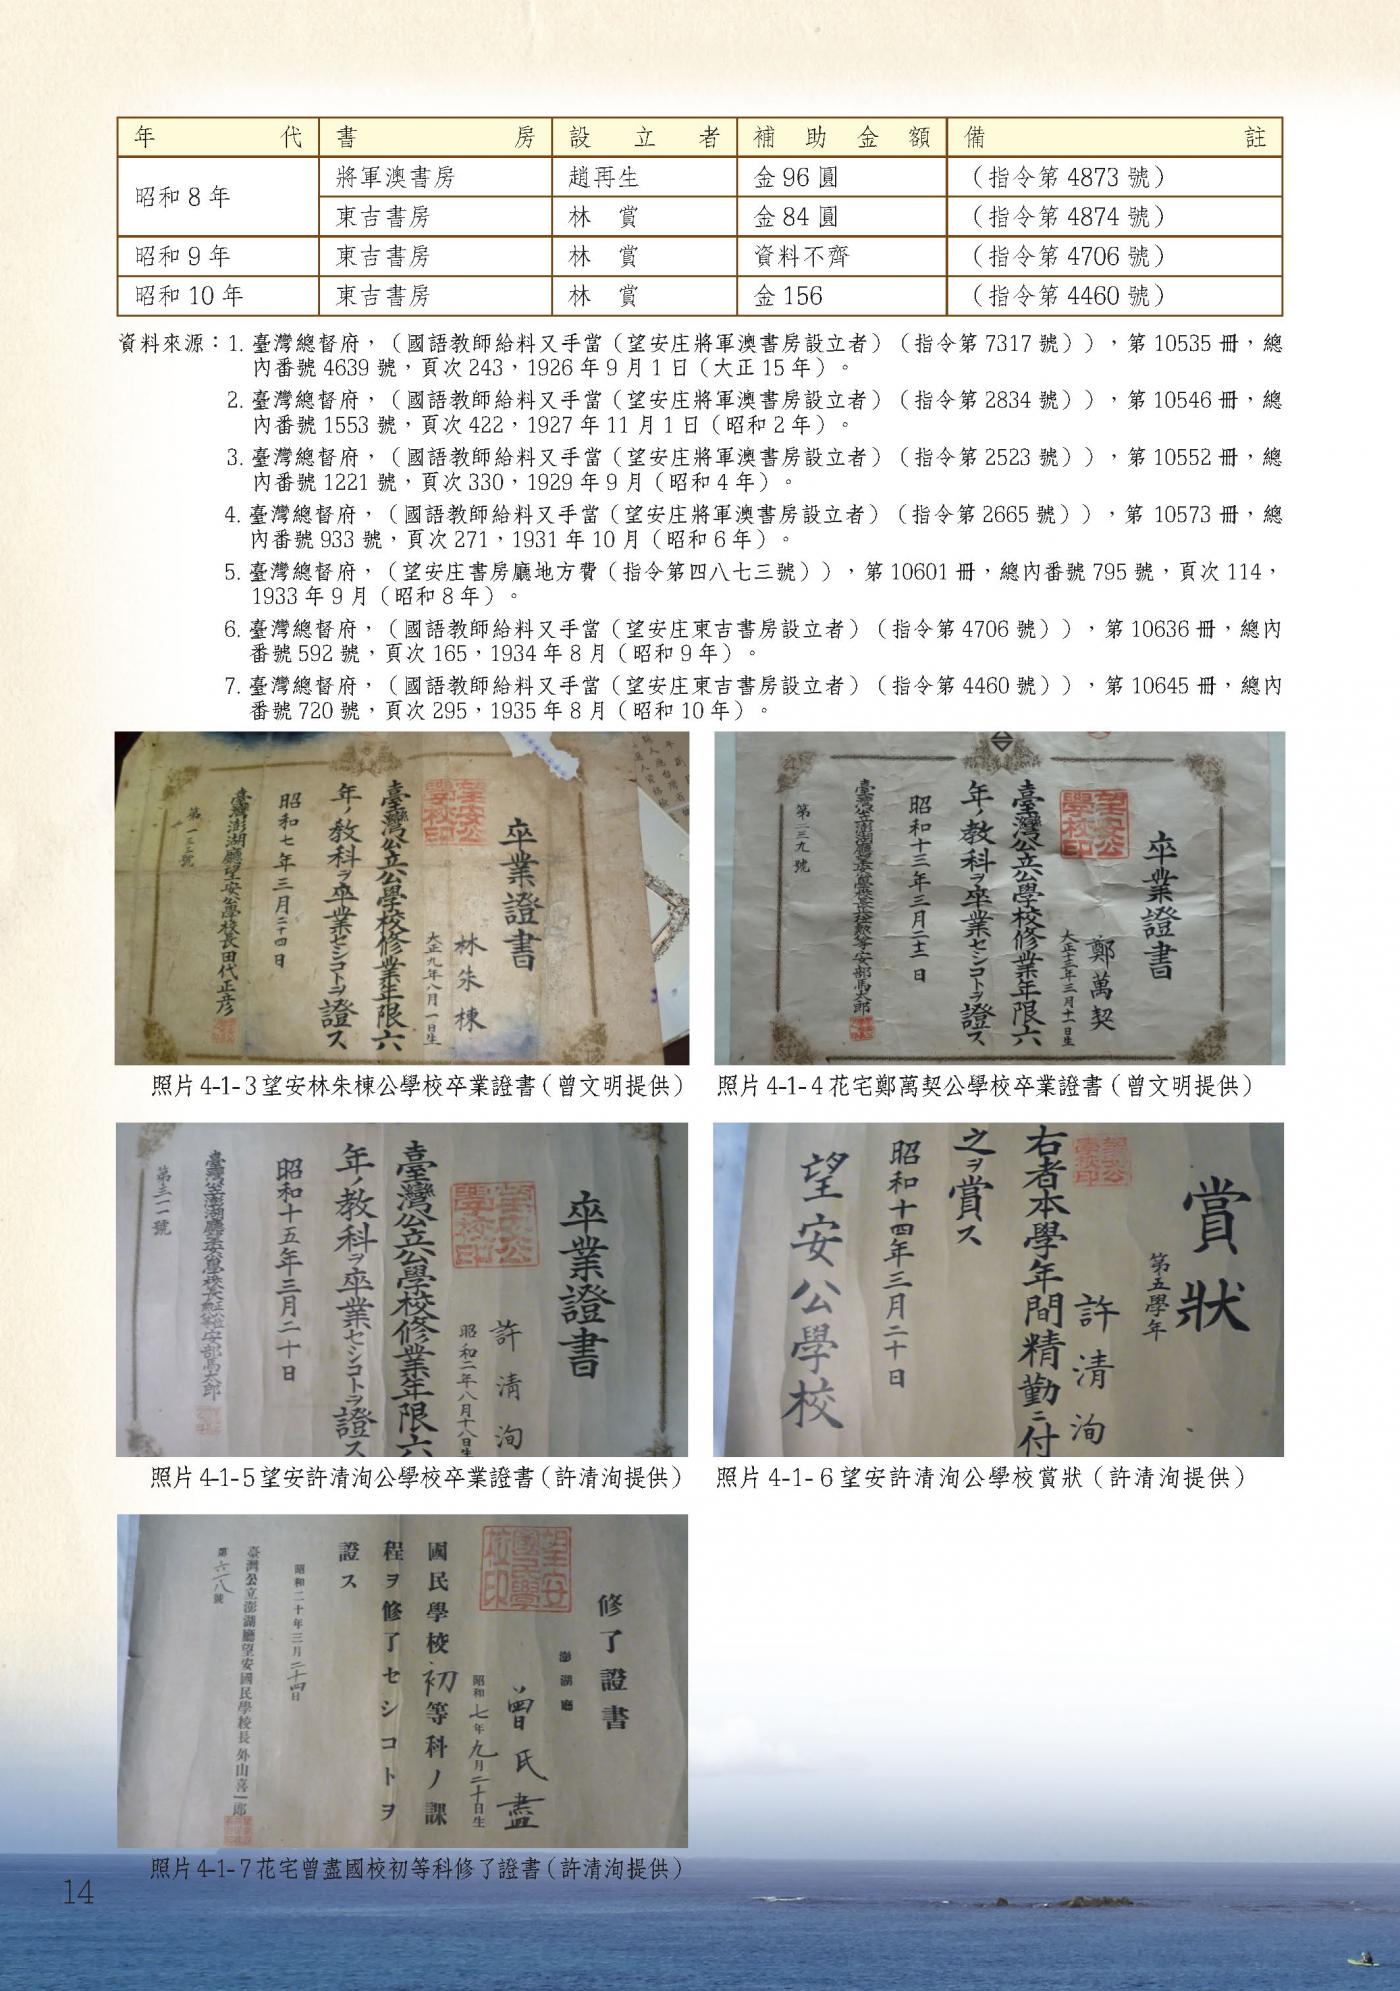 年代 書房 設立者 補助金額 備註
昭和 8 年 將軍澳書房 趙再生 金 96 圓 （指令第 4873 號）
東吉書房 林 賞 金 84 圓 （指令第 4874 號）
昭和 9 年 東吉書房 林 賞 資料不齊 （指令第 4706 號）
昭和 10 年 東吉書房 林 賞 金 156 （指令第 4460 號）
資料來源：1. 臺灣總督府，（國語教師給料又手當（望安庄將軍澳書房設立者）（指令第 7317 號）），第 10535 冊，總
內番號 4639 號，頁次 243，1926 年 9 月 1 日（大正 15 年）。
2. 臺灣總督府，（國語教師給料又手當（望安庄將軍澳書房設立者）（指令第 2834 號）），第 10546 冊，總
內番號 1553 號，頁次 422，1927 年 11 月 1 日（昭和 2 年）。
3. 臺灣總督府，（國語教師給料又手當（望安庄將軍澳書房設立者）（指令第 2523 號）），第 10552 冊，總
內番號 1221 號，頁次 330，1929 年 9 月（昭和 4 年）。
4. 臺灣總督府，（國語教師給料又手當（望安庄將軍澳書房設立者）（指令第 2665 號）），第 10573 冊，總
內番號 933 號，頁次 271，1931 年 10 月（昭和 6 年）。
5. 臺灣總督府，（望安庄書房廳地方費（指令第四八七三號）），第 10601 冊，總內番號 795 號，頁次 114，
1933 年 9 月（昭和 8 年）。
6. 臺灣總督府，（國語教師給料又手當（望安庄東吉書房設立者）（指令第 4706 號）），第 10636 冊，總內
番號 592 號，頁次 165，1934 年 8 月（昭和 9 年）。
7. 臺灣總督府，（國語教師給料又手當（望安庄東吉書房設立者）（指令第 4460 號）），第 10645 冊，總內
番號 720 號，頁次 295，1935 年 8 月（昭和 10 年）。
卒業證書
林朱棟
大正九年八月一日生
望安公學校印
臺灣公立公學校修業年限六
年ノ教科ヲ卒業セシコトヲ證ス
昭和七年三月二十四日
臺灣澎湖廳望安公學校長田代正彦
第一三三號
照片 4-1-3 望安林朱棟公學校卒業證書（曾文明提供）
卒業證書
鄭萬契
大正十三年三月十一日生
望安公學校印
臺灣公立公學校修業年限六
年ノ教科ヲ卒業セシコトヲ證ス
昭和十三年三月二十三日
安部馬太郎
第二三九號
照片 4-1-4 花宅鄭萬契公學校卒業證書（曾文明提供）
卒業證書
許清洵
昭和二年八月十八日生
望安公學校印
臺灣公立公學校修業年限六
年ノ教科ヲ卒業セシコトヲ證ス
昭和十五年三月二十日
安部馬太郎
第三一一號
照片 4-1-5 望安許清洵公學校卒業證書（許清洵提供）
賞狀
第五學年
許清洵
望安公學校印
右者本學年間精勤ニ付
之ヲ賞ス
昭和十四年三月二十日
望安公學校
照片 4-1-6 望安許清洵公學校賞狀（許清洵提供）
修了證書
澎湖廳
曾氏盡
昭和七年九月二十日生
望安國民學校印
國民學校初等科ノ課
程ヲ修了セシコトヲ
證ス
昭和二十年三月二十四日
臺灣公立澎湖廳望安國民學校長 外山喜一郎
第六一八號
照片 4-1-7 花宅曾盡國校初等科修了證書（許清洵提供）
14